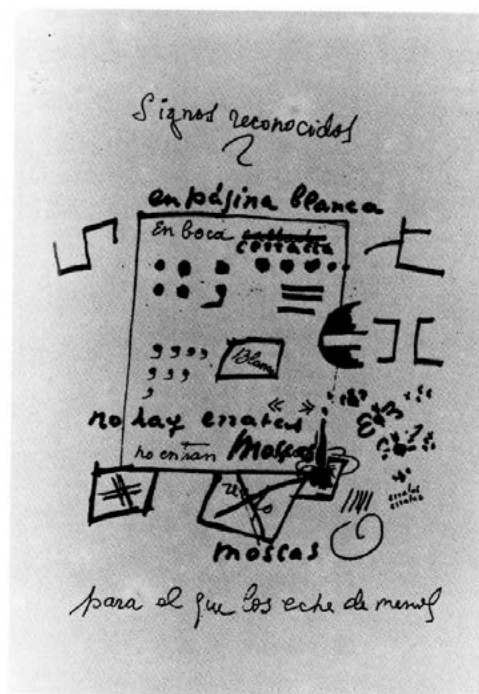 Signos reconocidos
en página blanca
En boca cerrada
Blan
no hay erratas
no entran Moscas
moscas
erratas
erratas
para el que los eche de menos